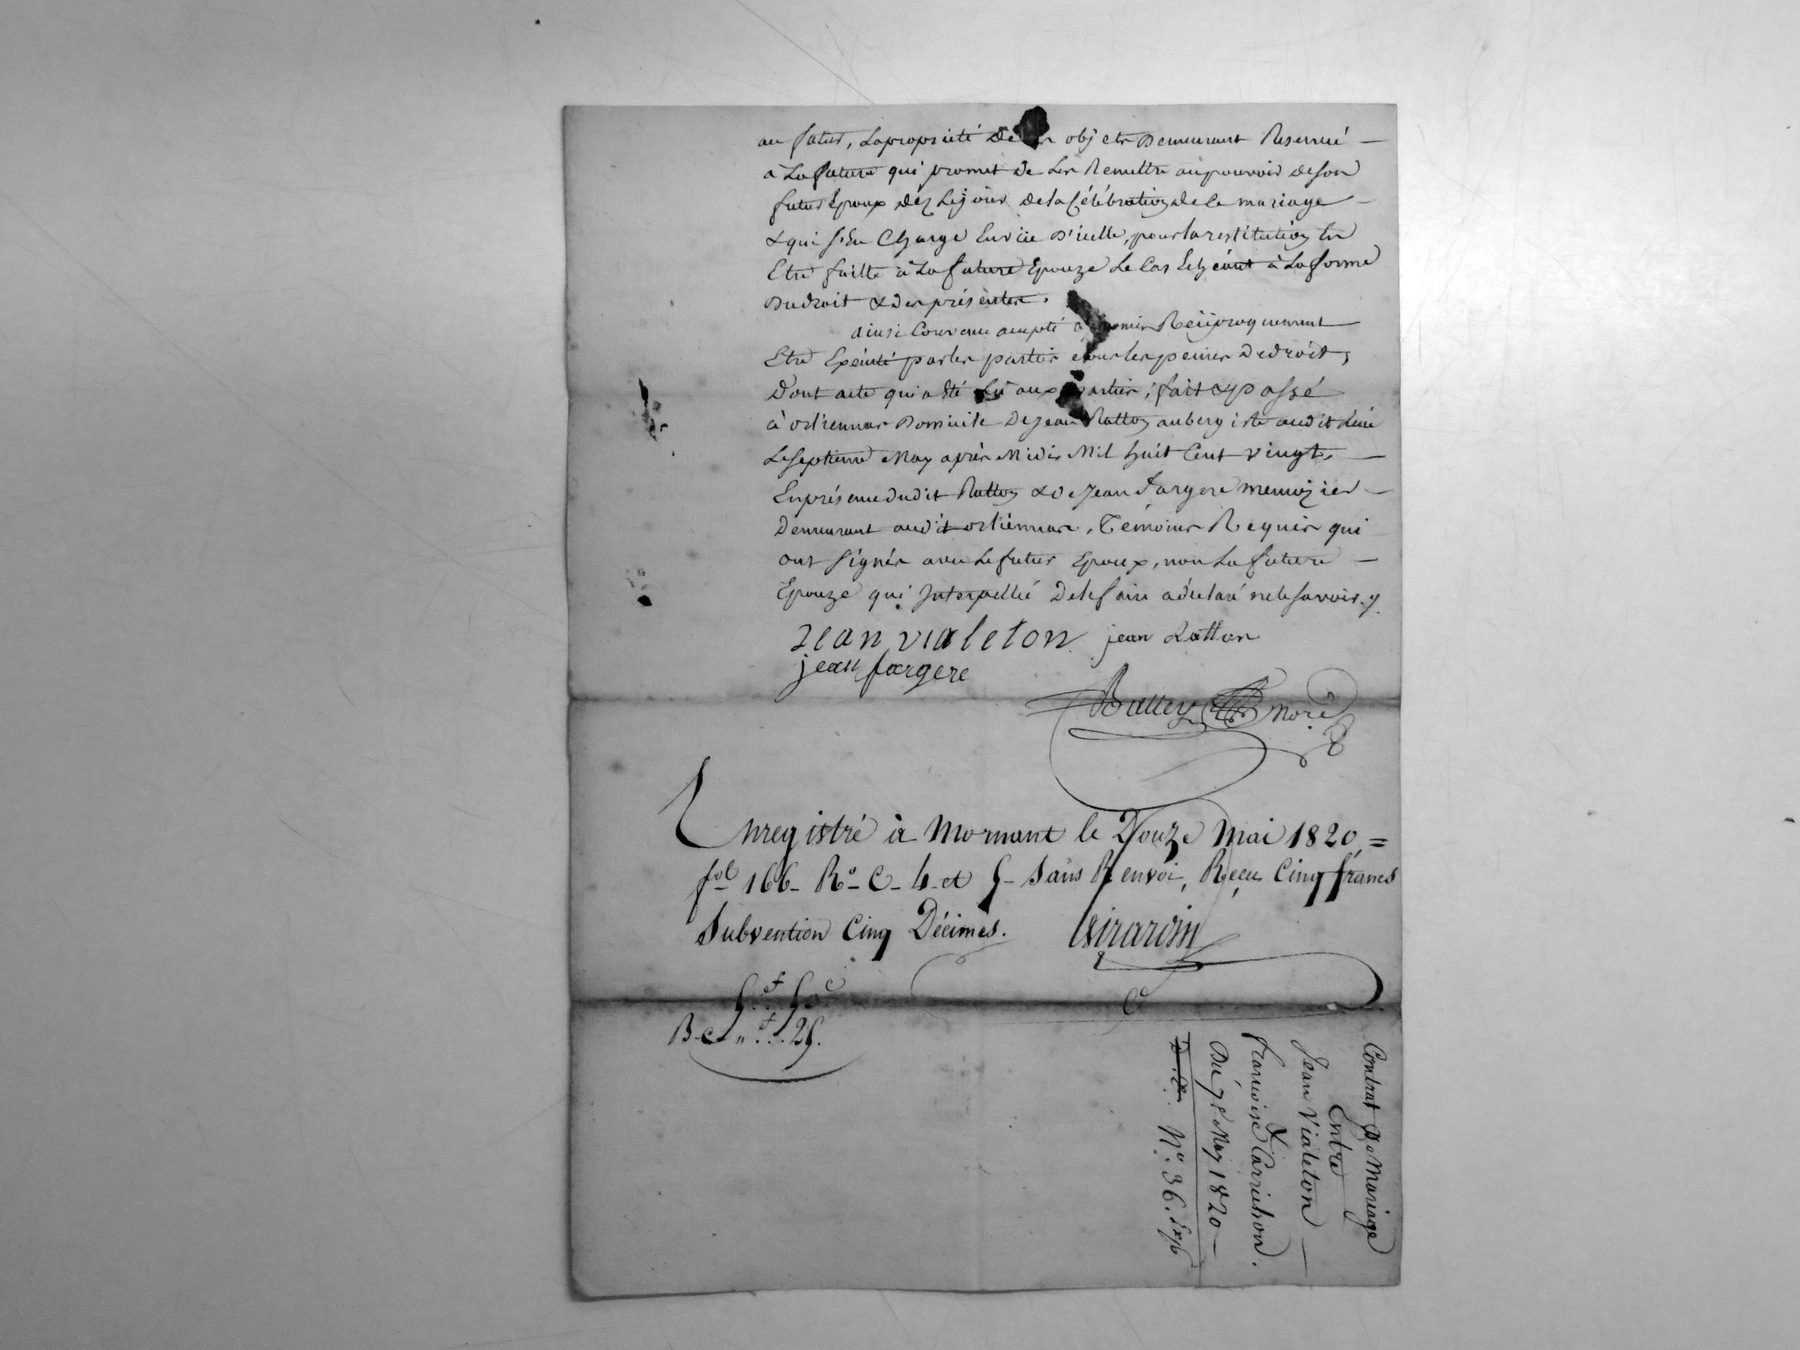 au futur, la propriété de objets demeurant Reservée —
à La future qui promet de Les Remettre au pouvoir de son
futur Epoux dèz Le jour de la Célébration de Ce mariage —
& qui s'En Charge Envers D'icelle, pour la restitution En
Etre faitte à La future Epouze Le Cas Echéant à La forme
Du droit & des présentes.
ainsi Convenu accepté & promis Réciproquement —
Etre Exécuté par les parties sous les peines De droit,
Dont acte qui a Eté Lu aux parties ; fait & passé
à orliennas Domicile De Jean Ratton aubergiste audit Lieu
Le septieme May après Midi Mil huit Cent vingt, —
En présence dudit Ratton & De Jean Fargere menuizier —
Demeurant audit orliennas, Témoins Requis qui
ont Signés avec Le futur Epoux, non La future —
Epouze qui Interpellée De le faire a déclaré ne le savoir.
Jean vialeton jean Ratton
jean fargere
nore
Enregistré à Mornant le Douze Mai 1820, =
fol 166 - Ro - C - 4 et 5 - Sans Renvoi, Reçu Cinq francs
Subvention Cinq Décimes. Girardin
5.f 50c
25.
Contrat De Mariage
Entre
Jean Vialeton —
&
francoise Carrichon.
Du 7e May 1820 —
No. 36.